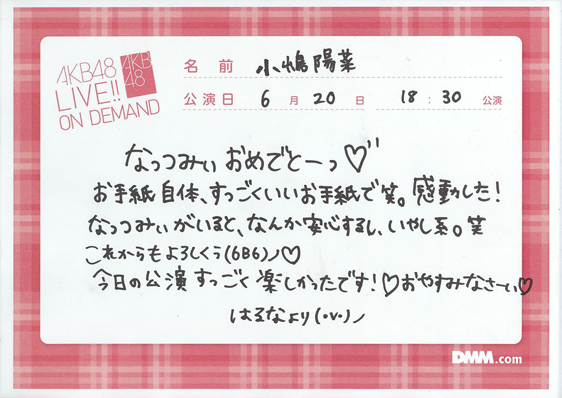 AKB48
LIVE!!
ON DEMAND
AKB
48
名 前 小嶋陽菜
公演日 6 月 20 日 18 : 30 公演
なっつみぃ おめでとーっ♡"
お手紙自体、すっごくいいお手紙で笑。感動した!
なっつみぃがいると、なんか安心するし、いやし系。笑
これからもよろしくぅ(6B6)ノ♡
今日の公演すっごく楽しかったです!♡おやすみなさーい♡
はるなより(•v•)ノ
DMM.com